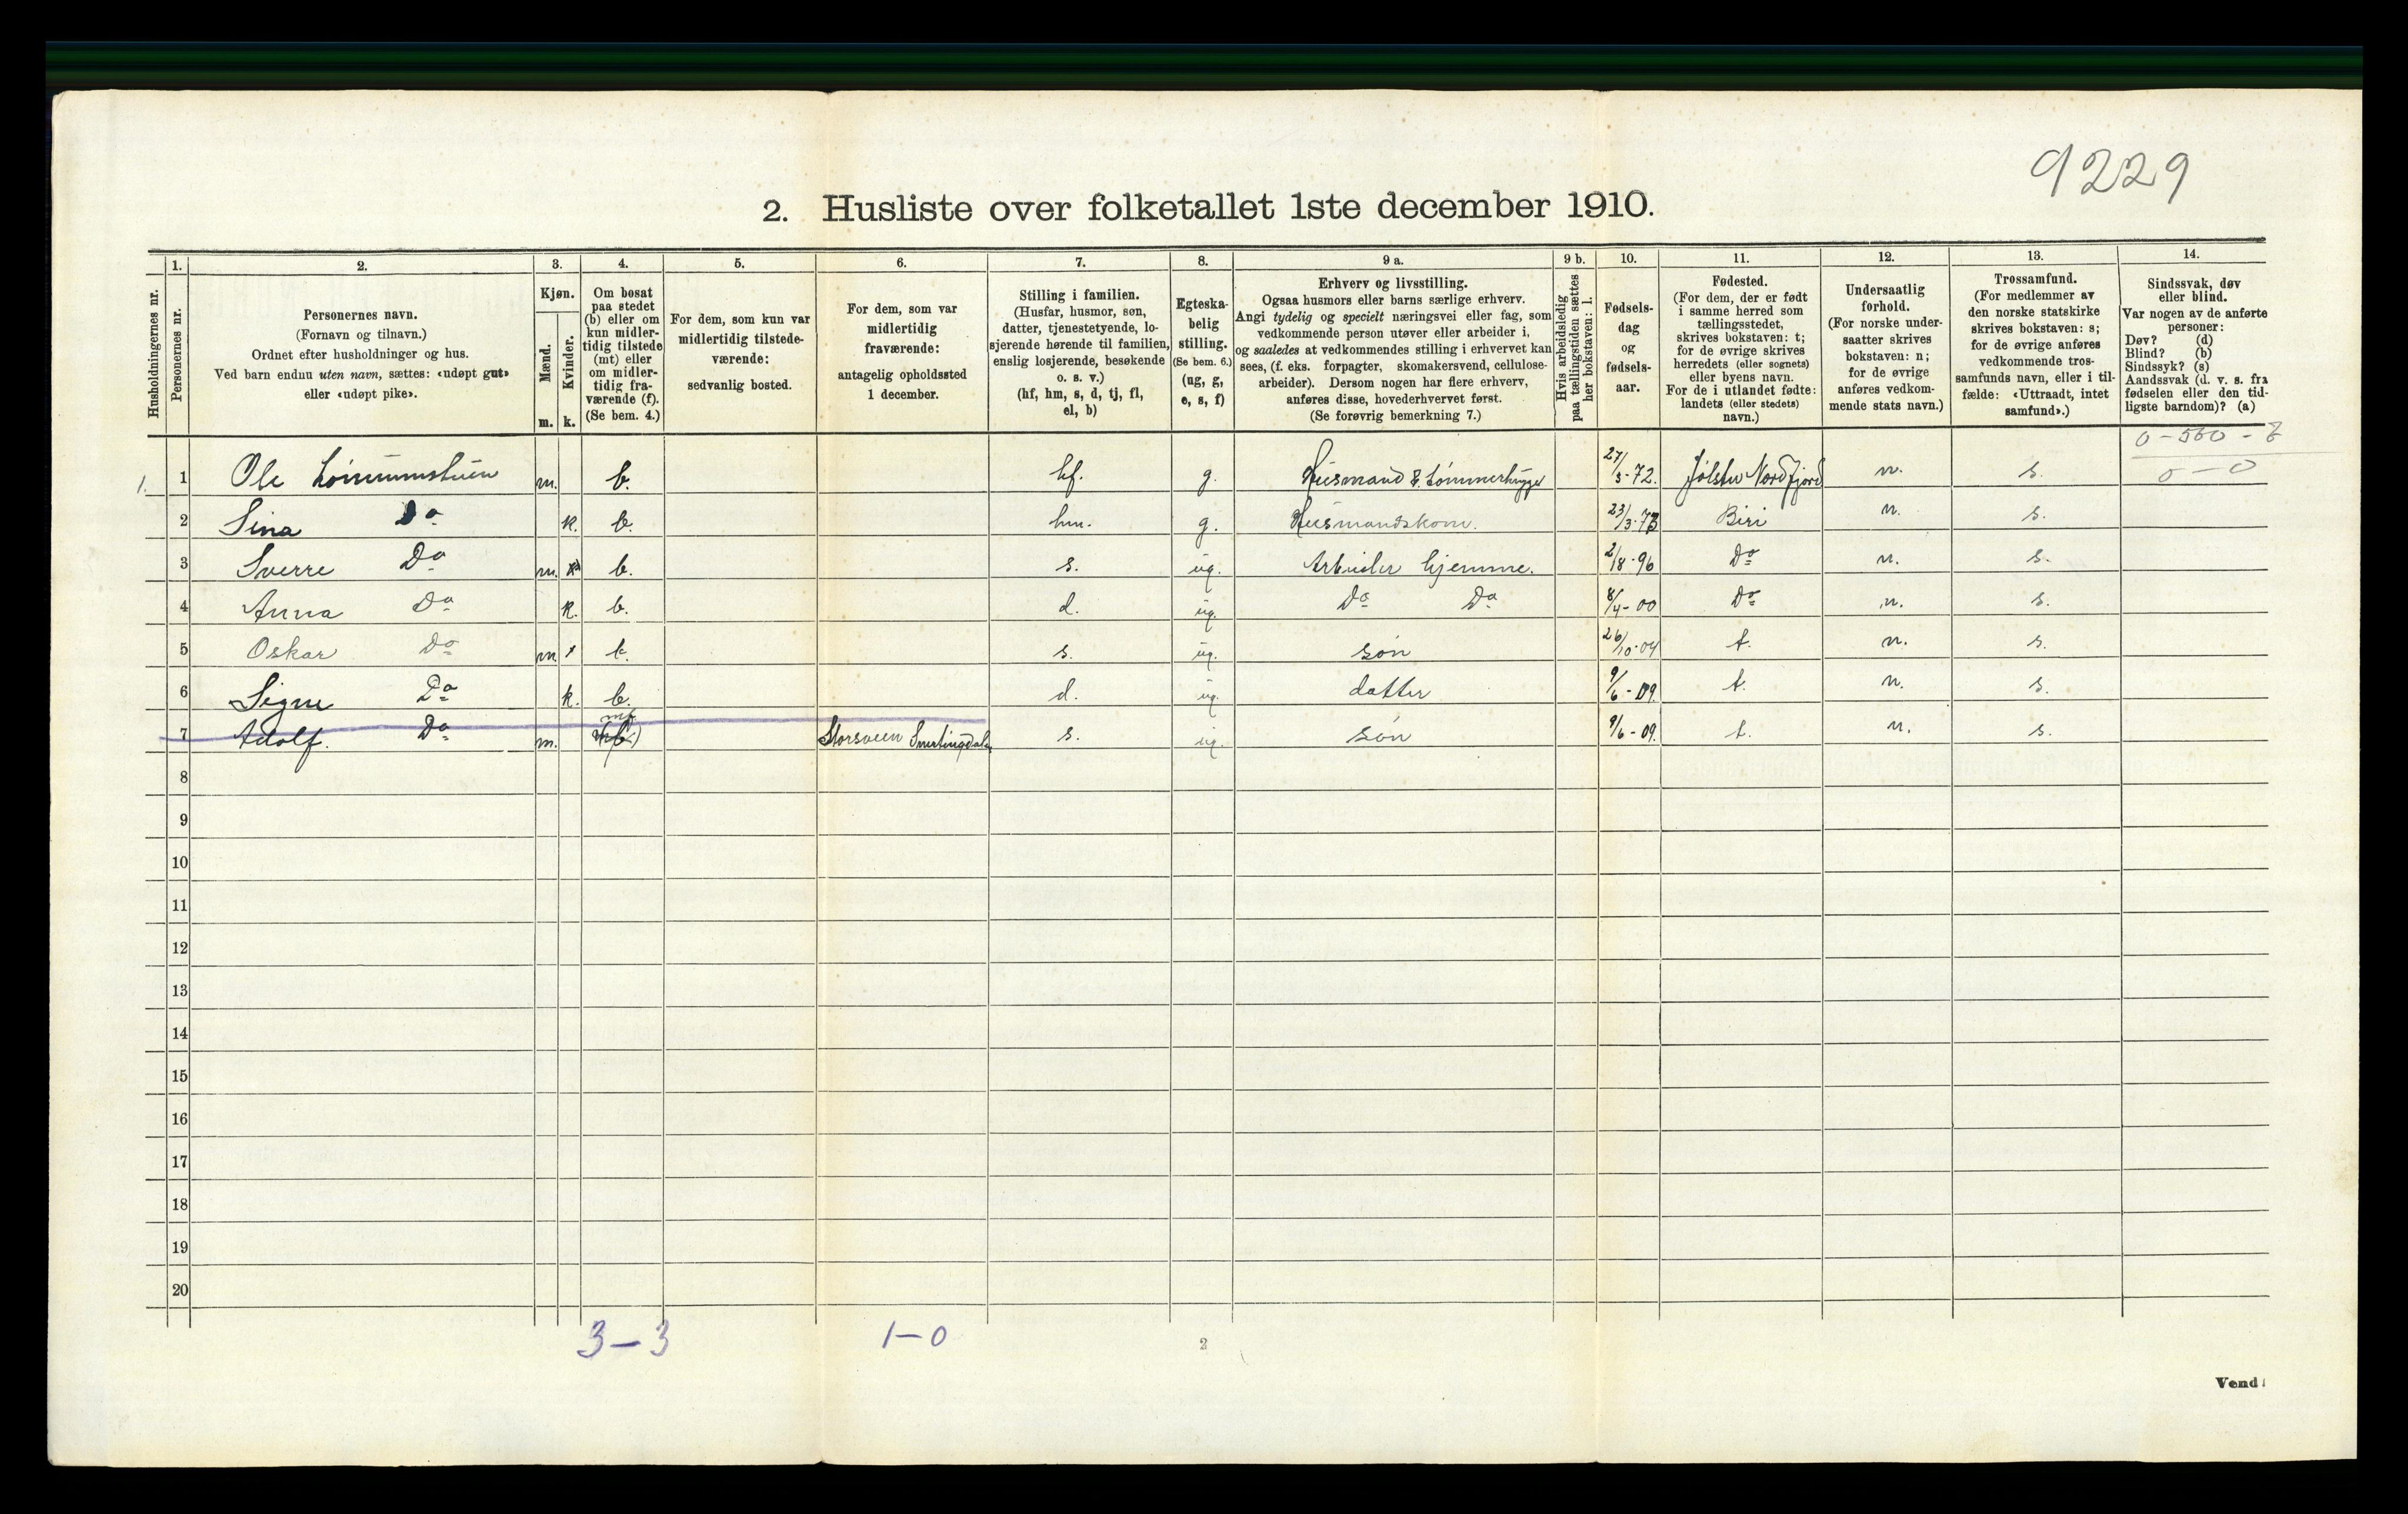 9229
2. Husliste over folketallet 1ste december 1910.
Husholdningernes nr.
1.
Personernes nr.
2.
Personernes navn.
(Fornavn og tilnavn.)
Ordnet efter husholdninger og hus.
Ved barn endnu uten navn, sættes: «udøpt gut»
eller «udøpt pike».
3.
Kjøn.
Mænd.
m.
Kvinder.
k.
4.
Om bosat
paa stedet
(b) eller om
kun midler-
tidig tilstede
(mt) eller
om midler-
tidig fra-
værende (f).
(Se bem. 4.)
5.
For dem, som kun var
midlertidig tilstede-
værende:
sedvanlig bosted.
6.
For dem, som var
midlertidig
fraværende:
antagelig opholdssted
1 december.
7.
Stilling i familien.
(Husfar, husmor, søn,
datter, tjenestetyende, lo-
sjerende hørende til familien,
enslig losjerende, besøkende
o. s. v.)
(hf, hm, s, d, tj, fl,
el, b)
8.
Egteska-
belig
stilling.
(Se bem. 6.)
(ug, g,
e, s, f)
9 a.
Erhverv og livsstilling.
Ogsaa husmors eller barns særlige erhverv.
Angi tydelig og specielt næringsvei eller fag, som
vedkommende person utøver eller arbeider i,
og saaledes at vedkommendes stilling i erhvervet kan
sees, (f. eks. forpagter, skomakersvend, cellulose-
arbeider). Dersom nogen har flere erhverv,
anføres disse, hovederhvervet først.
(Se forøvrig bemerkning 7.)
9 b.
Hvis arbeidsledig
paa tællingstiden sættes
her bokstaven: l.
10.
Fødsels-
dag
og
fødsels-
aar.
11.
Fødested.
(For dem, der er født
i samme herred som
tællingsstedet,
skrives bokstaven: t;
for de øvrige skrives
herredets (eller sognets)
eller byens navn.
For de i utlandet fødte:
landets (eller stedets)
navn.)
12.
Undersaatlig
forhold.
(For norske under-
saatter skrives
bokstaven: n;
for de øvrige
anføres vedkom-
mende stats navn.)
13.
Trossamfund.
(For medlemmer av
den norske statskirke
skrives bokstaven: s;
for de øvrige anføres
vedkommende tros-
samfunds navn, eller i til-
fælde: «Uttraadt, intet
samfund».)
14.
Sindssvak, døv
eller blind.
Var nogen av de anførte
personer:
Døv? (d)
Blind? (b)
Sindssyk? (s)
Aandssvak (d. v. s. fra
fødselen eller den tid-
ligste barndom)? (a)
0-0
1. 1 Ole m. b. hf. g. Husmand & tømmerhugger 27/3-72. Jølster Nordfjord n. s.
2 Sina Do k. b. hm. g. Husmandskone. 23/3-73 Biri n. s.
3 Sverre Do m. b. s. ug. Arbeider hjemme. 2/8-96 Do n. s.
4 Anna Do k. b. d. ug. Do Do 8/4-00 Do n. s.
5 Oskar Do m b. s. ug. søn 26/10-04 t. n. s.
6 Signe Do k. b. d. ug. datter 9/6-09. t. n. s.
7 Adolf. Do m. Storsveen Snertingdalen s. ug. søn 9/6-09. t. n. s.
8
9
10
11
12
13
14
15
16
17
18
19
20
3-3 1-0
2
Vend!